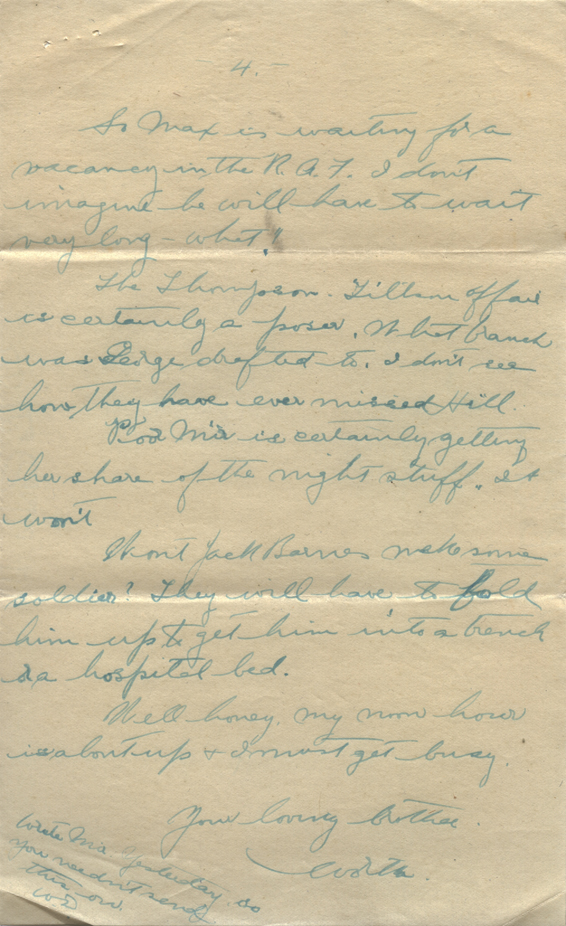 4.-
So Max is waiting for a
vacancy in the R.A.F. I don't
imagine he will have to wait
very long - what!
The Thompson - Tillson affair
is certainly a poser. What branch
was George drafted to. I don't see
how they have ever missed Hill.
Poor Mir is certainly getting
her share of the night stuff. It
won't
Wont Jack Barnes make some
soldier? They will have to fold
him up & get him into a trench
or a hospital bed.
Well honey, my noon hour
is about up & I must get busy.
Your loving brother
Worth.
Wrote Mir yesterday so
you needn't send
this on.